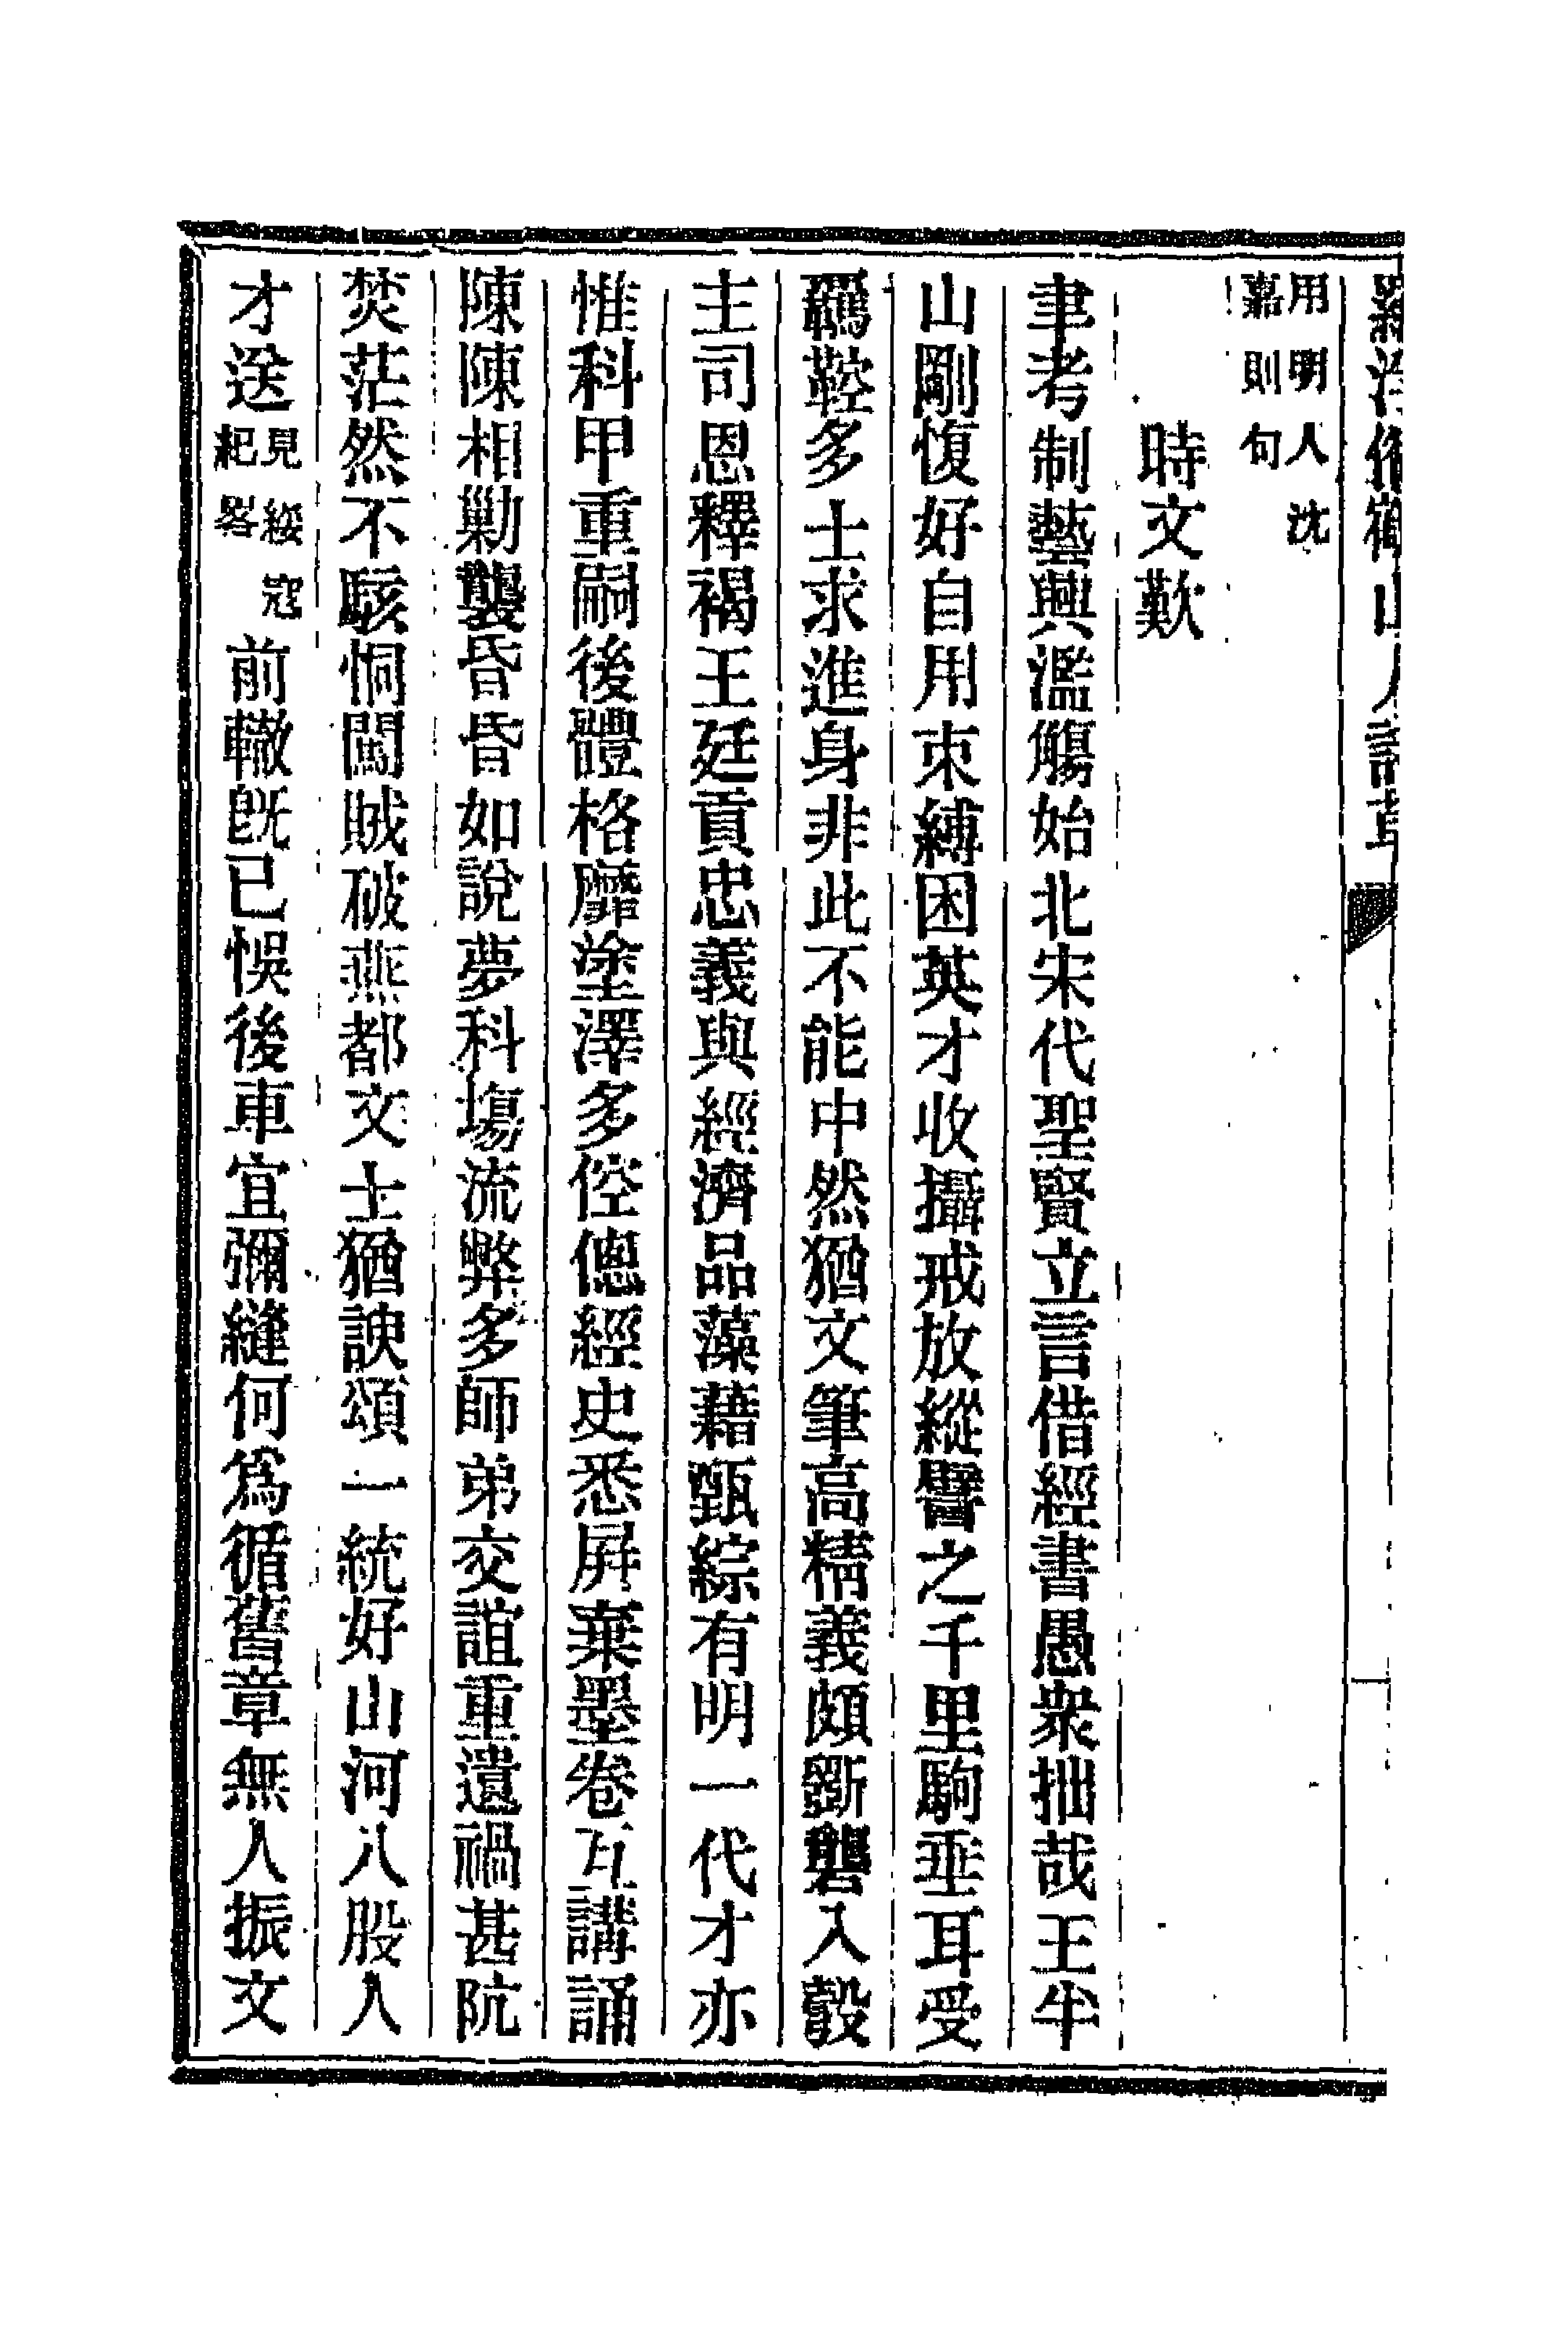 用明人沈
嘉則句
時文歎
聿考制藝興濫觴始北宋代聖賢立言借經書愚衆拙哉王半
山剛愎好自用束縛困英才收攝戒放縱譬之千里駒垂耳受
羈鞚多士求進身非此不能中然猶文筆高精義頗斵礱入彀
主司恩釋褐王廷貢忠義與經濟品藻藉甄綜有明一代才亦
惟科甲重嗣後體格靡塗澤多倥傯經史悉屏棄墨卷互講誦
陳陳相勦襲昏昏如說夢科塲流弊多師弟交誼重遺禍甚阬
焚茫然不駭恫闖賊破燕都文士猶諛頌一統好山河八股人
才送
見綏寇
紀畧
前轍旣已悞後車宜彌縫何爲循舊章無人振文